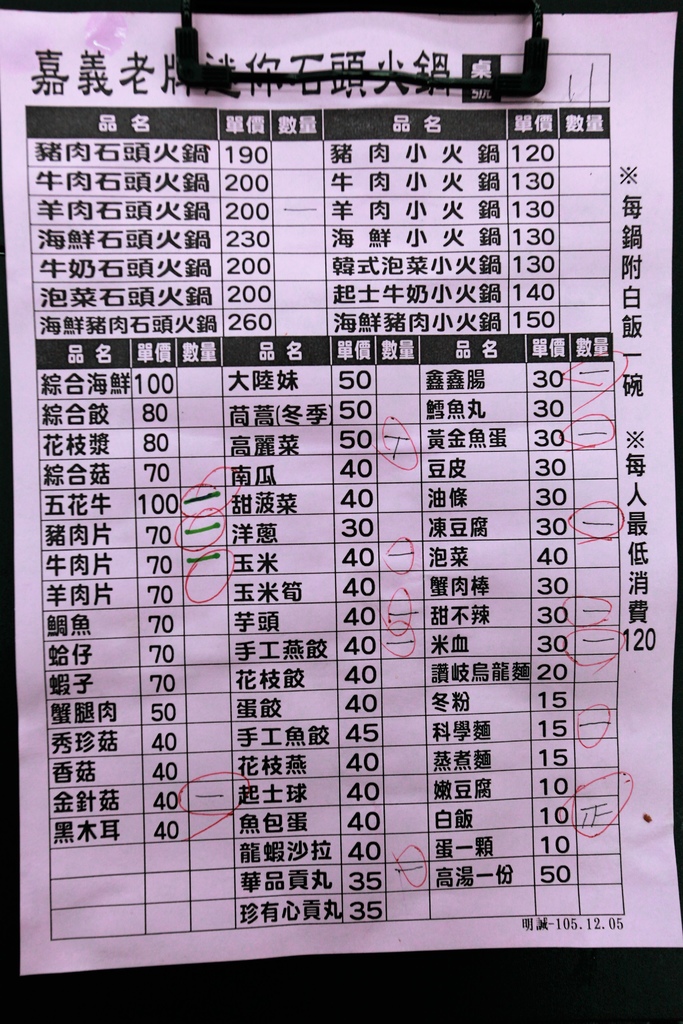 嘉義老牌迷你石頭火鍋 桌號 11
品名 單價 數量 品名 單價 數量
豬肉石頭火鍋 190 豬肉小火鍋 120
牛肉石頭火鍋 200 牛肉小火鍋 130
羊肉石頭火鍋 200 一 羊肉小火鍋 130
海鮮石頭火鍋 230 海鮮小火鍋 130
牛奶石頭火鍋 200 韓式泡菜小火鍋 130
泡菜石頭火鍋 200 起士牛奶小火鍋 140
海鮮豬肉石頭火鍋 260 海鮮豬肉小火鍋 150
品名 單價 數量 品名 單價 數量 品名 單價 數量
綜合海鮮 100 大陸妹 50 鑫鑫腸 30 一
綜合餃 80 茼蒿(冬季) 50 鱈魚丸 30
花枝漿 80 高麗菜 50 丅 黃金魚蛋 30 一
綜合菇 70 南瓜 40 豆皮 30
五花牛 100 一 甜菠菜 40 油條 30
豬肉片 70 一 洋蔥 30 凍豆腐 30 一
牛肉片 70 一 玉米 40 一 泡菜 40
羊肉片 70 玉米筍 40 蟹肉棒 30
鯛魚 70 芋頭 40 一 甜不辣 30 一
蛤仔 70 手工燕餃 40 一 米血 30 一
蝦子 70 花枝餃 40 讚岐烏龍麵 20
蟹腿肉 50 蛋餃 40 冬粉 15
秀珍菇 40 手工魚餃 45 科學麵 15 一
香菇 40 花枝燕 40 蒸煮麵 15
金針菇 40 一 起士球 40 嫩豆腐 10
黑木耳 40 魚包蛋 40 白飯 10 正
龍蝦沙拉 40 蛋一顆 10
華品貢丸 35 一 高湯一份 50
珍有心貢丸 35
明誠-105.12.05
※每鍋附白飯一碗
※每人最低消費120